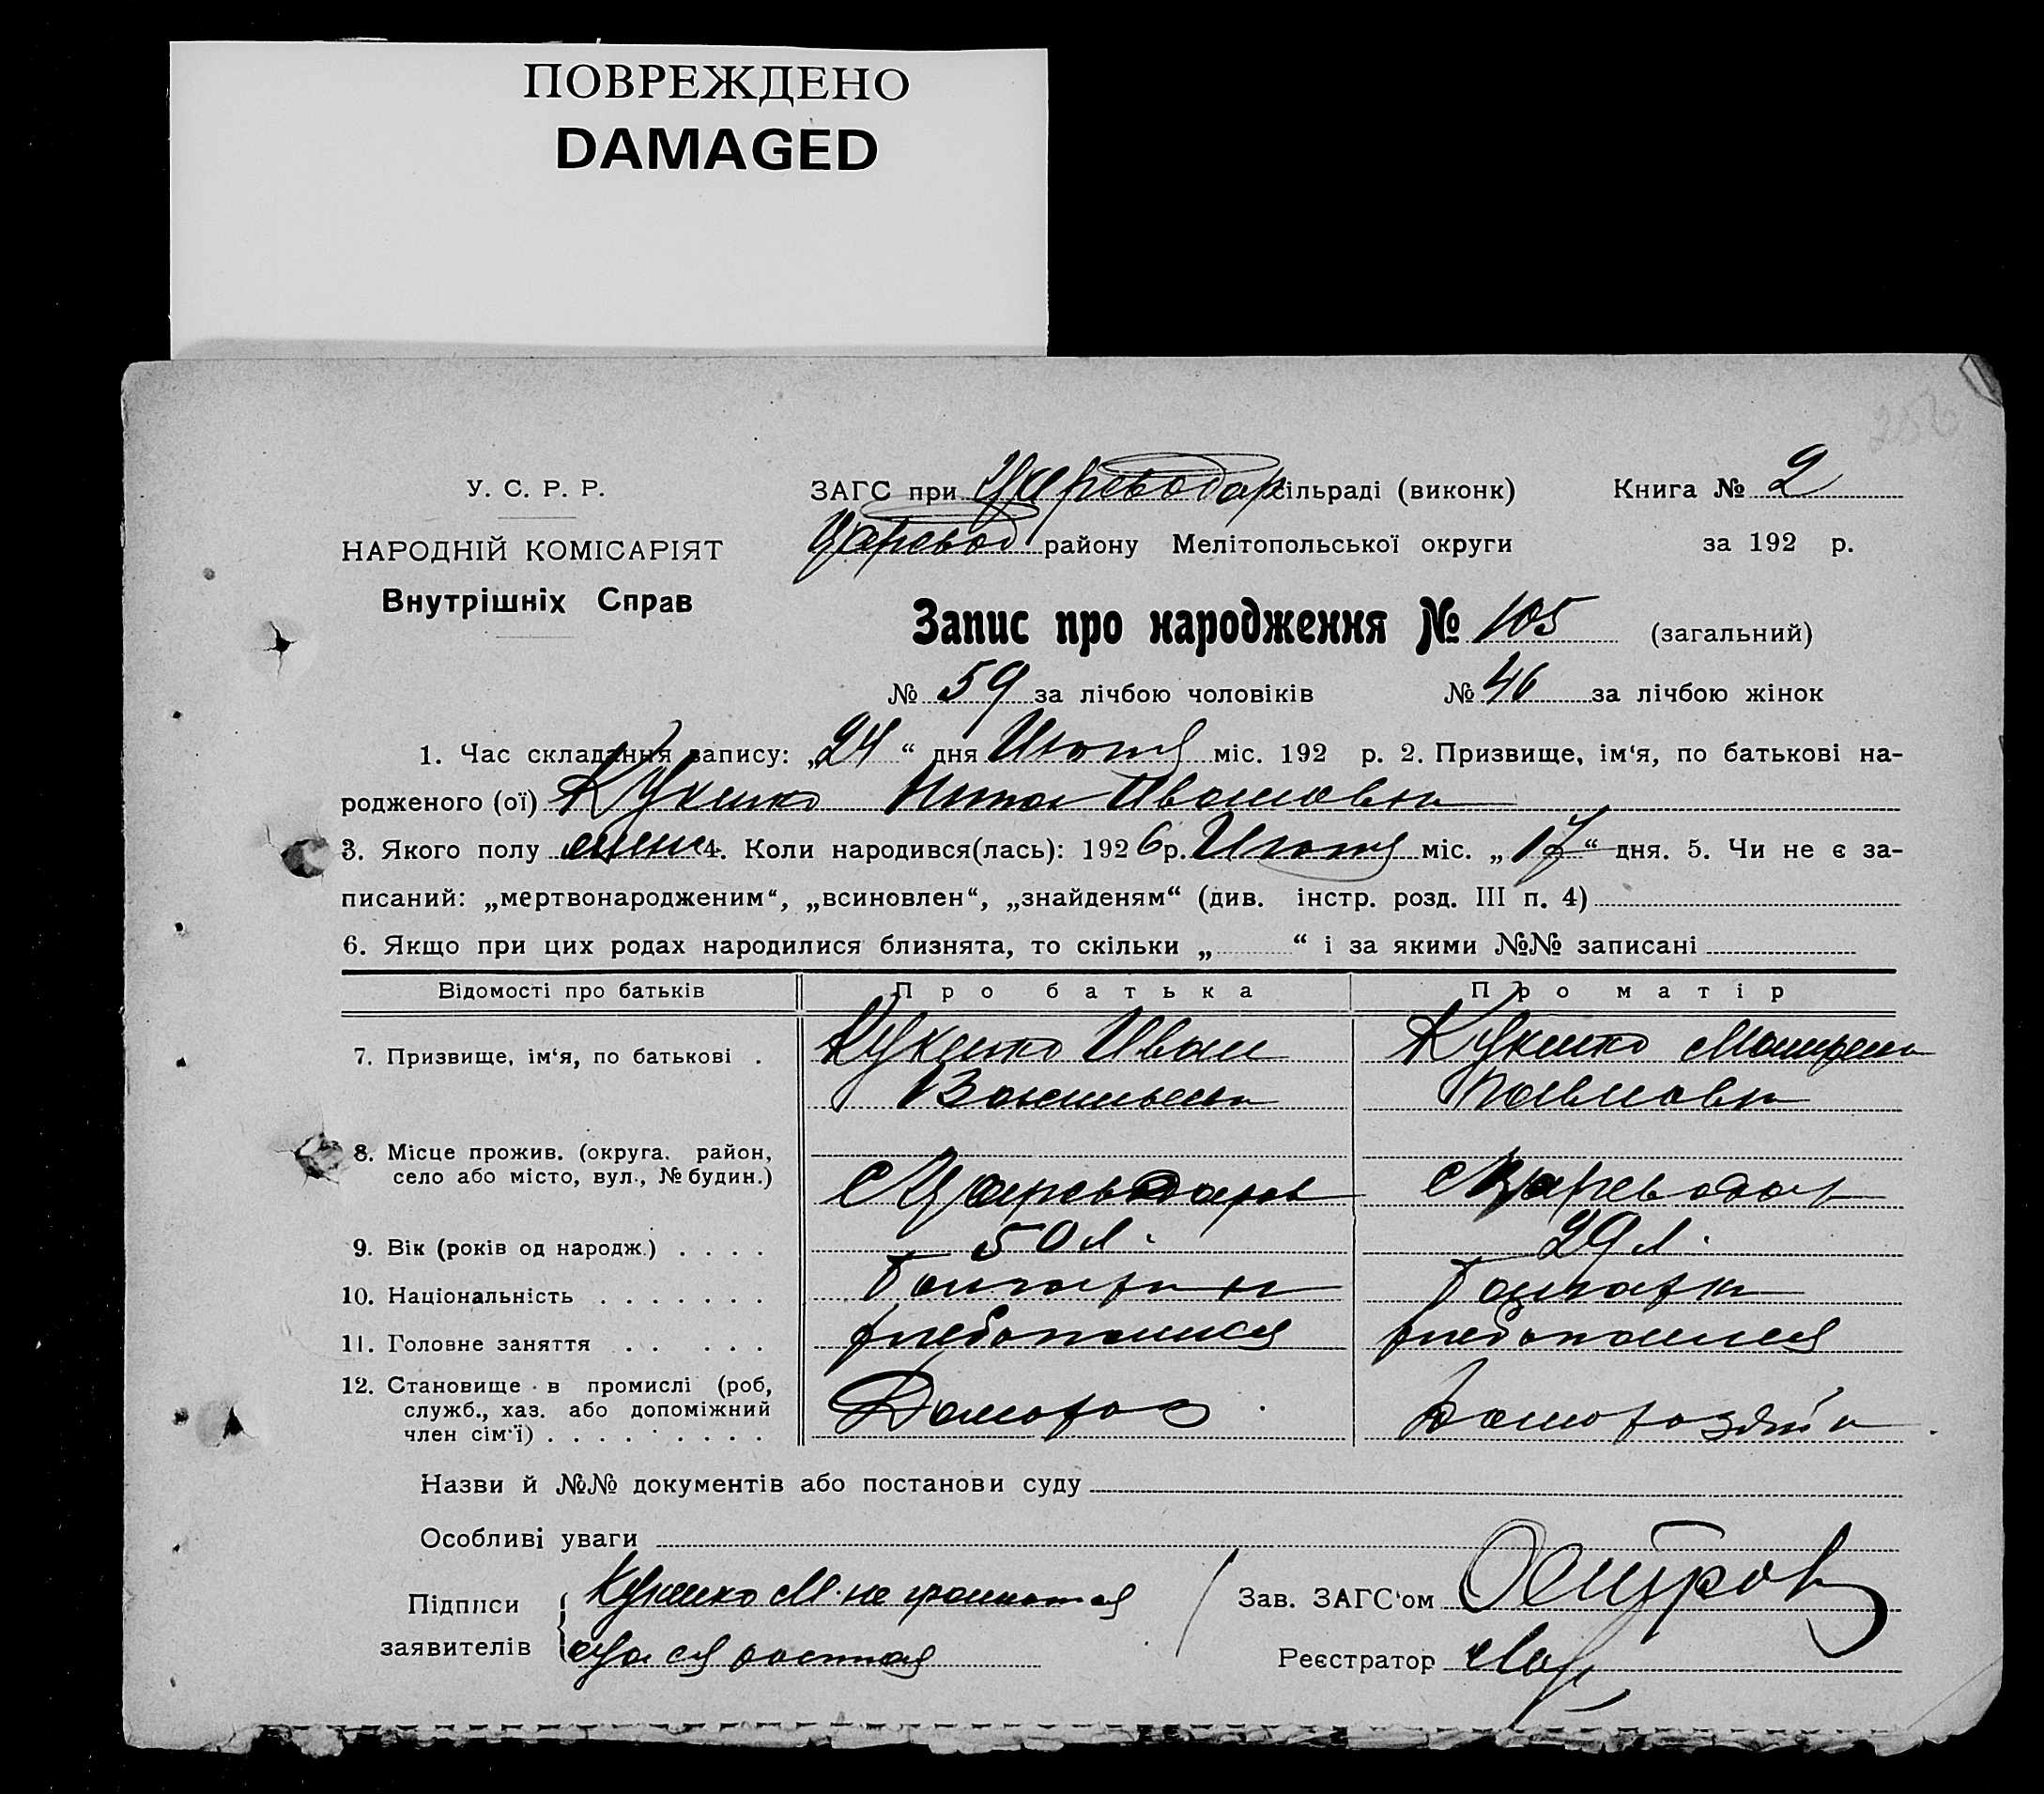 ПОВРЕЖДЕНО
DAMAGED
У. С. Р. Р.
НАРОДНІЙ КОМІСАРІЯТ
Внутрішніх Справ
ЗАГС при Цареводар сільраді (виконк) Книга № 2
Царевод району Мелітопольської округи за 192 р.
Запис про народження № 105 (загальний)
№ 59 за лічбою чоловіків № 46 за лічбою жінок
1. Час складання запису: „24“ дня Июня міс. 192 р. 2. Призвище, ім‘я, по батькові на-
родженого (ої) Кукенко Ивановна
3. Якого полу жен 4. Коли народився(лась): 1926 р. Июня міс. „17“ дня. 5. Чи не є за-
писаний: „мертвонародженим“, „всиновлен“, „знайденям“ (див. інстр. розд. III п. 4)
6. Якщо при цих родах народилися близнята, то скільки „ “ і за якими №№ записані
Відомості про батьків Про батька Про матір
7. Призвище, ім‘я, по батькові . Кукенко Иван Кукенко
Васильев Павловна
8. Місце прожив. (округа, район,
село або місто, вул., № будин.) с Цареводаров с Цареводар
9. Вік (років од народж.) . . . . 50 л. 29 л.
10. Національність . . . . . . . Болгарин Болгарка
11. Головне заняття . . . . . хлебопашец хлебопашец
12. Становище в промислі (роб,
служб., хаз. або допоміжний
член сім‘ї) . . . . . . . . . Домохоз. Домохозяйка
Назви й №№ документів або постанови суду
Особливі уваги
Підписи
заявителів
Кукенко М. не грамотная
Зав. ЗАГС‘ом
Реєстратор